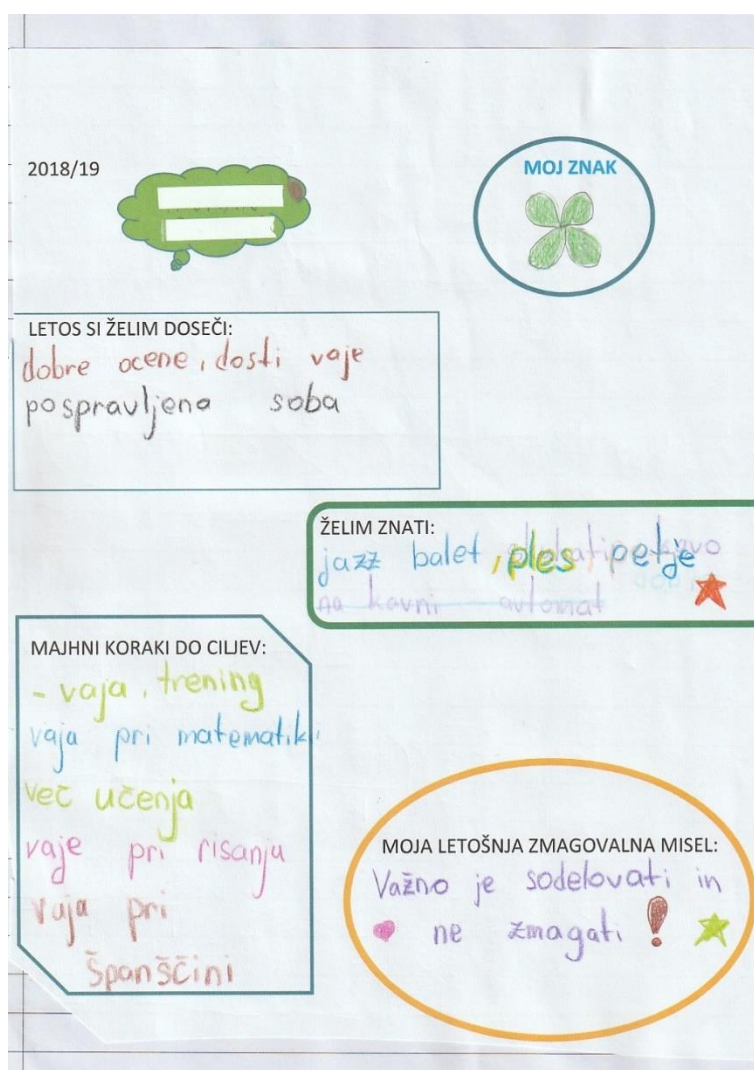 2018/19
MOJ ZNAK
LETOS SI ŽELIM DOSEČI:
dobre ocene, dosti vaje
pospravljena soba
ŽELIM ZNATI:
jazz balet, ples, petje
na kavni avtomat
MAJHNI KORAKI DO CILJEV:
- vaja, trening
vaja pri matematiki
več učenja
vaje pri risanju
vaja pri
španščini
MOJA LETOŠNJA ZMAGOVALNA MISEL:
Važno je sodelovati in
ne zmagati!